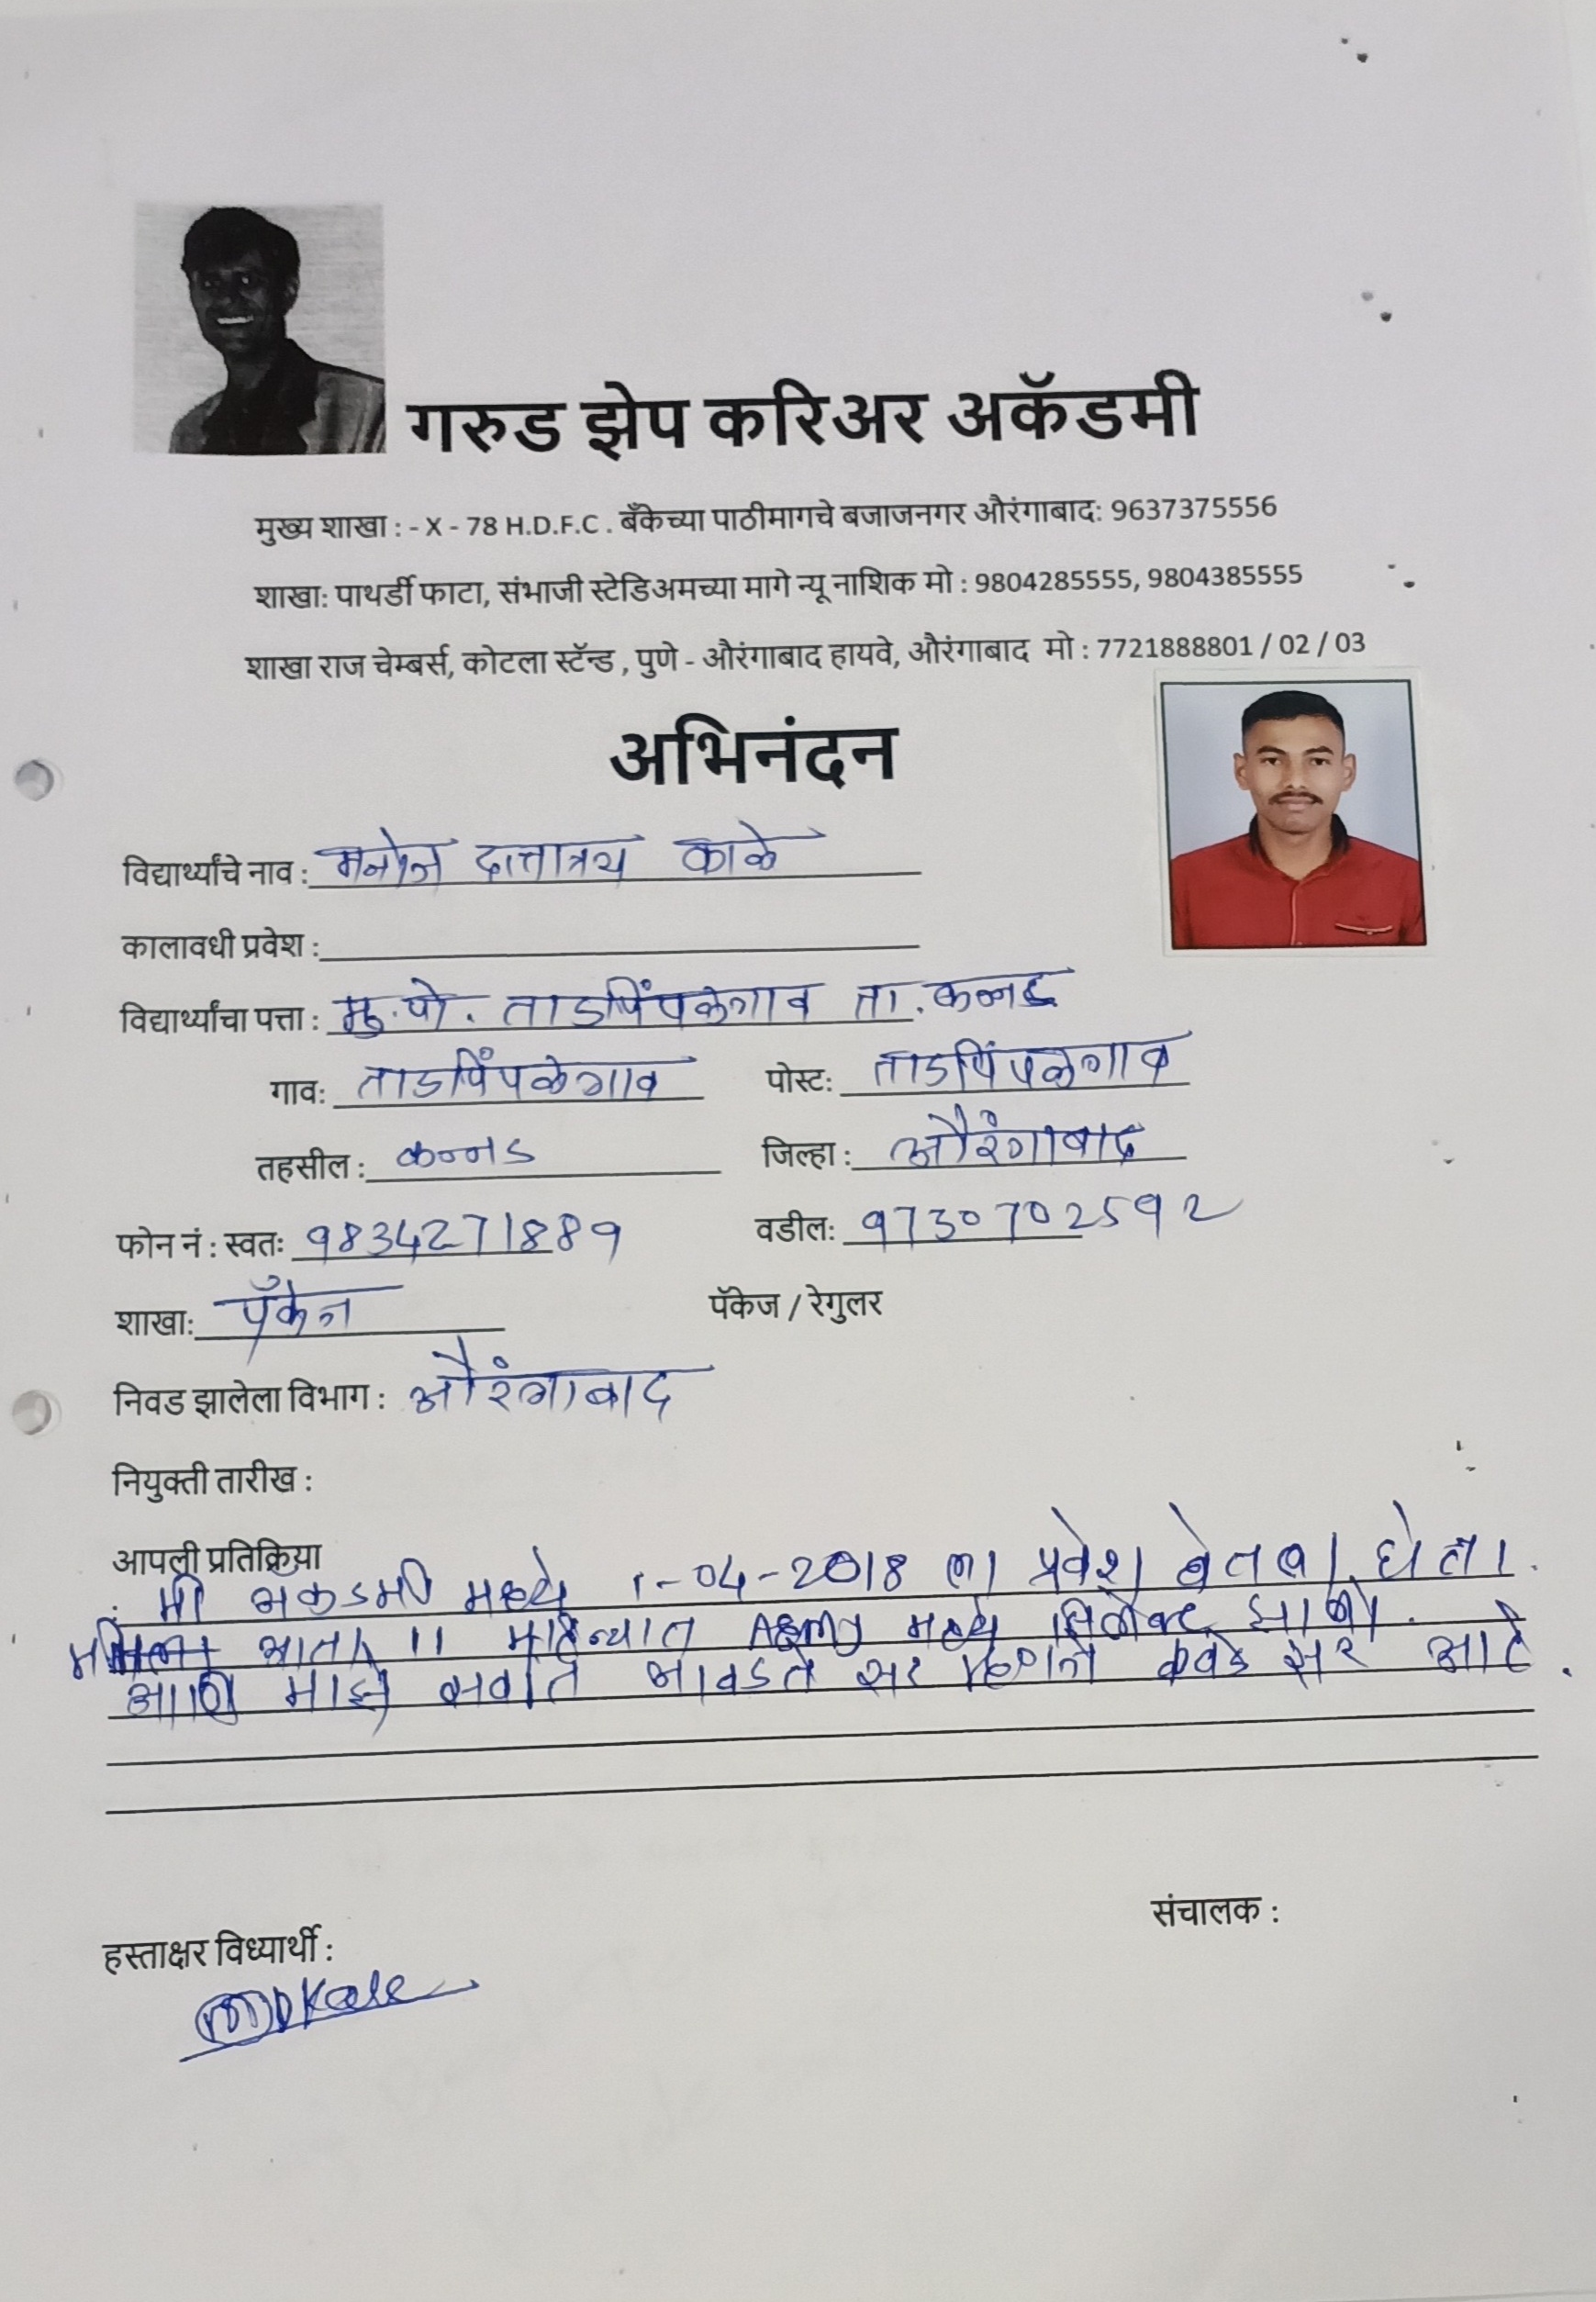 गरुड झेप करिअर अकॅडमी
मुख्य शाखा : - X - 78 H.D.F.C . बँकेच्या पाठीमागचे बजाजनगर औरंगाबाद: 9637375556
शाखा: पाथर्डी फाटा, संभाजी स्टेडिअमच्या मागे न्यू नाशिक मो : 9804285555, 9804385555
शाखा राज चेम्बर्स, कोटला स्टॅन्ड , पुणे - औरंगाबाद हायवे, औरंगाबाद मो : 7721888801 / 02 / 03
अभिनंदन
विद्यार्थ्यांचे नाव : मनोज दात्तात्रय काळे
कालावधी प्रवेश :
विद्यार्थ्यांचा पत्ता : मु.पो. ताडपिंपळगाव ता. कन्नड
गाव: ताडपिंपळगाव पोस्ट: ताडपिंपळगाव
तहसील : कन्नड जिल्हा : औरंगाबाद
फोन नं : स्वतः 9834271889 वडील: 9730702592
शाखा: पॅकेज पॅकेज / रेगुलर
निवड झालेला विभाग : औरंगाबाद
नियुक्ती तारीख :
आपली प्रतिक्रिया
मी अकडमी मध्ये 1-04-2018 ला प्रवेश घेतला होता.
आता 11 महिन्यात Army मध्ये सिलेक्ट झालो.
आणि माझे सर्वात आवडते सर म्हणजे कवडे सर आहे.
संचालक :
हस्ताक्षर विध्यार्थी :
MDKale